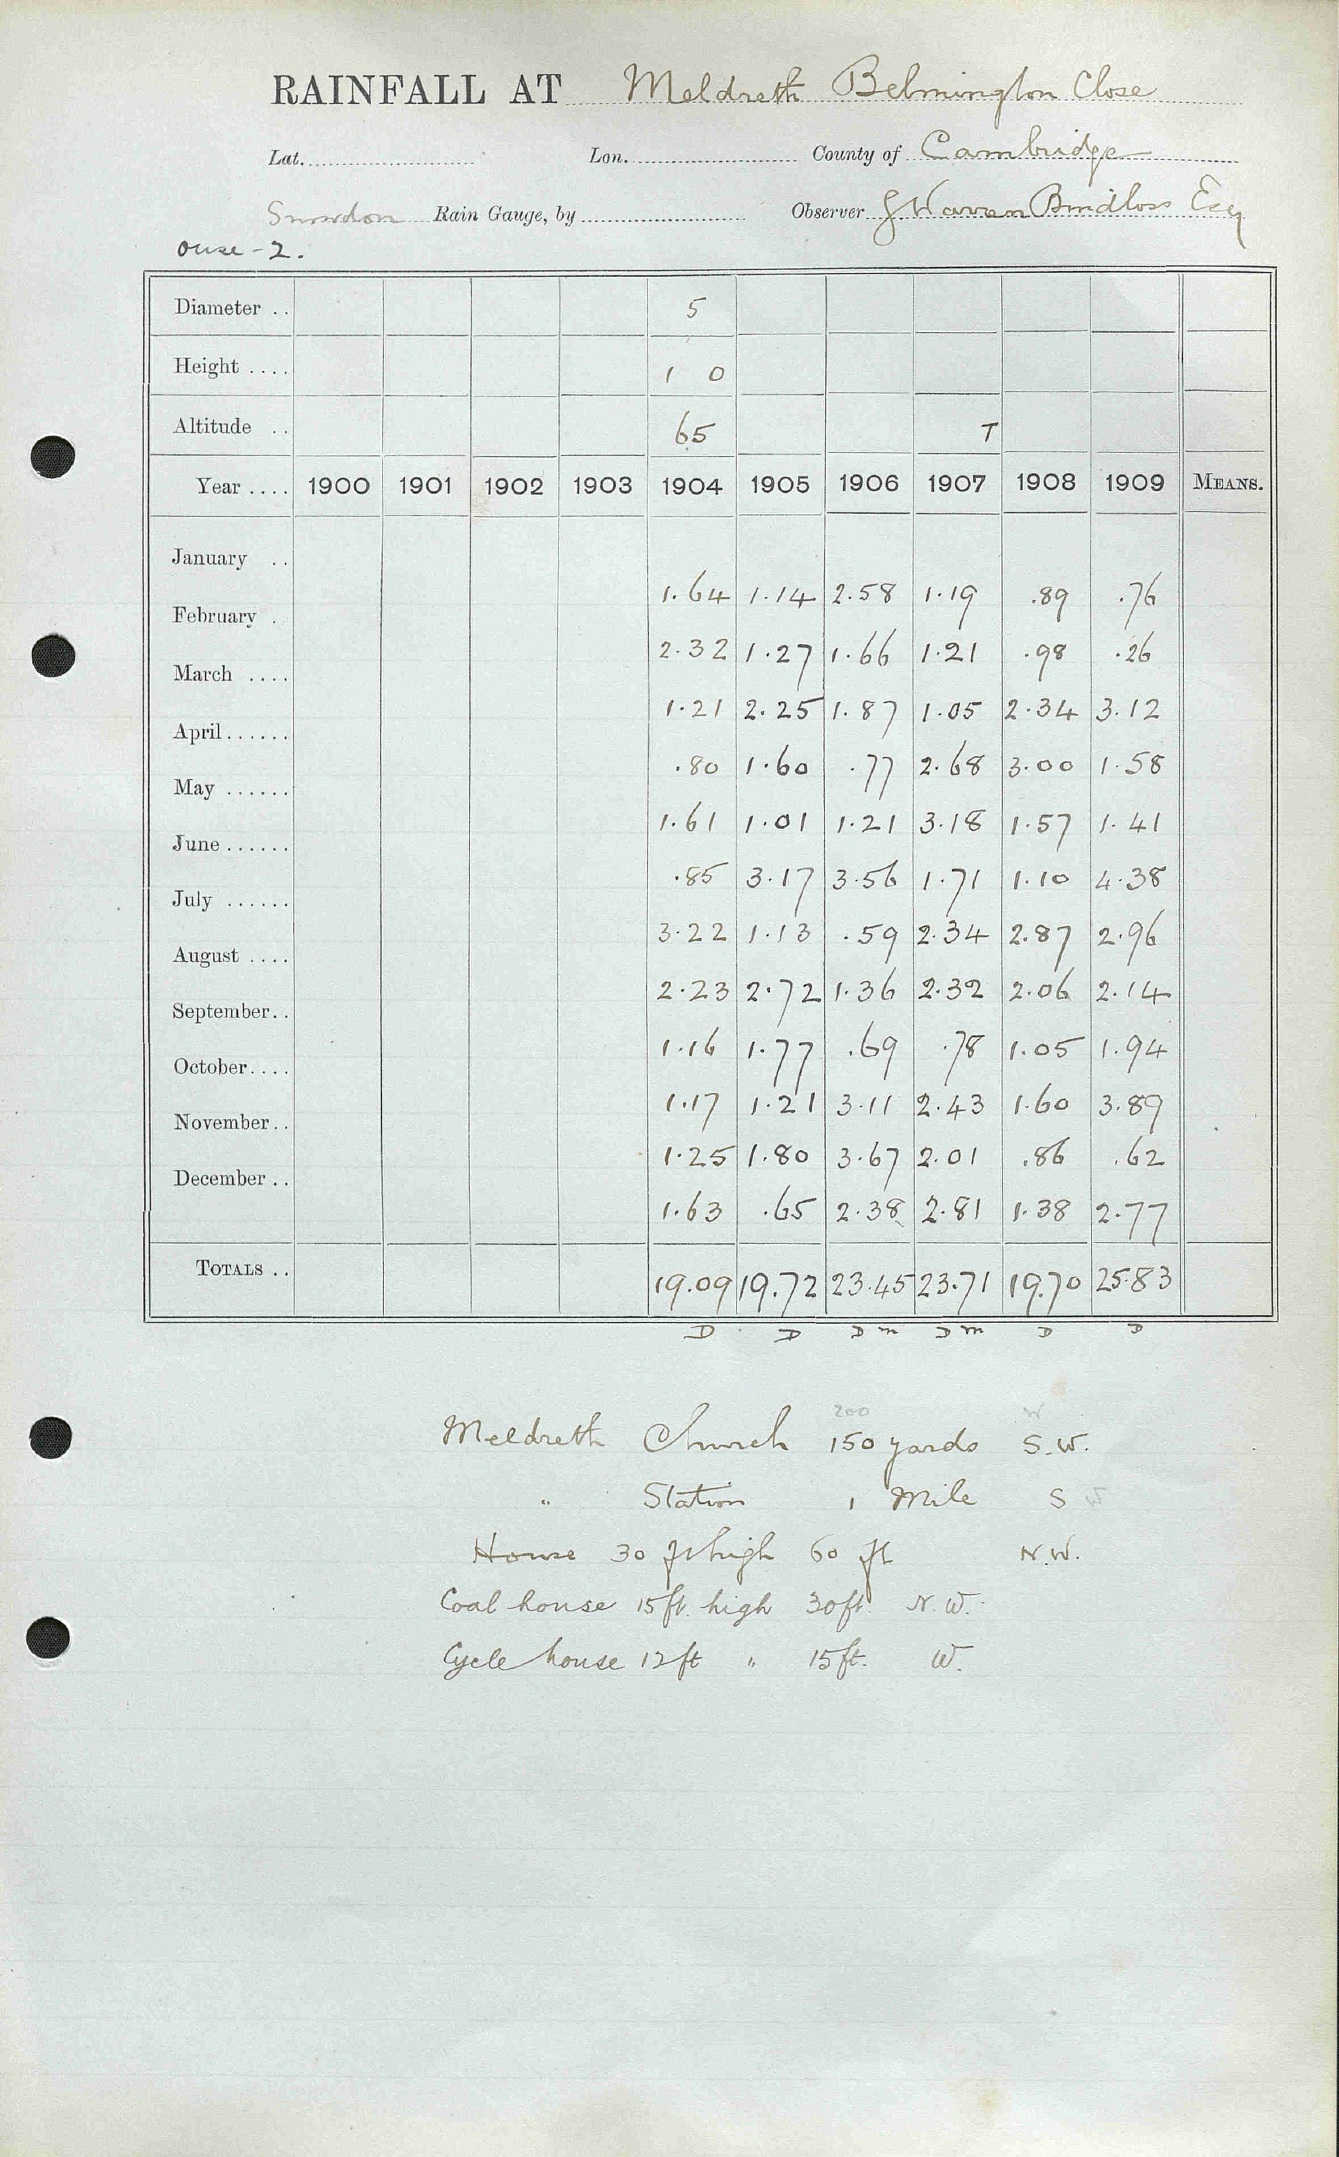 RAINFALL AT Meldreth Belmington Close
Lat. Lon. County of Cambridge
Snowdon Rain Gauge, by Observer G Warren Bindloss Esq
Ouse - 2.
Diameter .. 5
Height .... 1 0
Altitude .. 65 T
Year .... 1900 1901 1902 1903 1904 1905 1906 1907 1908 1909 MEANS.
January .. 1.64 1.14 2.58 1.19 .89 .76
February . 2.32 1.27 1.66 1.21 .98 .26
March .... 1.21 2.25 1.87 1.05 2.34 3.12
April...... .80 1.60 .77 2.68 3.00 1.58
May ...... 1.61 1.01 1.21 3.18 1.57 1.41
June ...... .85 3.17 3.56 1.71 1.10 4.38
July ...... 3.22 1.13 .59 2.34 2.87 2.96
August .... 2.23 2.72 1.36 2.32 2.06 2.14
September.. 1.16 1.77 .69 .78 1.05 1.94
October.... 1.17 1.21 3.11 2.43 1.60 3.89
November.. 1.25 1.80 3.67 2.01 .86 .62
December .. 1.63 .65 2.38 2.81 1.38 2.77
TOTALS .. 19.09 19.72 23.45 23.71 19.70 25.83
D D D m D m D D
200 W
Meldreth Church 150 yards S.W.
" Station 1 Mile S W
House 30 ft high 60 ft N.W.
Coal house 15 ft. high 30 ft. N.W.
Cycle house 12 ft " 15 ft. W.